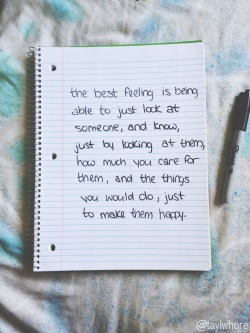 the best feeling is being
able to just look at
someone, and know,
just by looking at them,
how much you care for
them, and the things
you would do, just
to make them happy.
@taylwhore